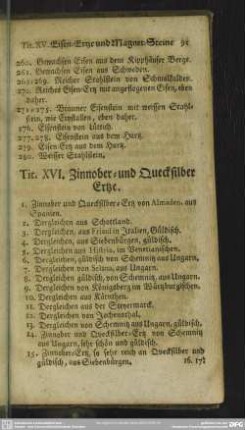 Tit. XV. Eisen-Ertze und Magnet-Steine 31
260. Gewachsen Eisen aus dem Kipphäuser Berge.
261. Gewachsen Eisen aus Schweden.
Reicher Stahlstein von Schmalkalden.
270. Reiches Eisen-Ertz mit angeflogenen Eisen, eben
daher.
271-275. Brauner Eisenstein mit weissen Stahl-
stein, wie Crystallen, eben daher.
276. Eisenstein von Lüttich.
277.278. Eisenstein aus dem Hartz.
279. Eisen-Ertz aus dem Hartz.
280. Weisser Stahlstein.
Tit. XVI. Zinnober- und Quecksilber
Ertze.
1. Zinnober und Quecksilber-Ertz von Almaden, aus
Spanien.
2. Dergleichen aus Schottland.
3. Dergleichen, aus Friaul in Italien, Güldisch.
4. Dergleichen, aus Siebenbürgen, güldisch.
5. Dergleichen aus Histria, im Venetianischen.
6. Dergleichen, güldisch von Schemnitz aus Ungarn,
7. Dergleichen von Selana, aus Ungarn.
8. Dergleichen güldisch, von Schemnitz, aus Ungarn.
9. Dergleichen von Königsberg im Würtzburgischen.
10. Dergleichen aus Kärnthen.
11. Dergleichen aus der Steyermarck.
12. Dergleichen von Jochenathal.
13. Dergleichen von Schemnitz aus Ungarn, güldisch.
14. Zinnober und Quecksilber-Ertz von Schemnitz
aus Ungarn, sehr schön und güldisch.
15. Zinnober-Ertz, so sehr reich an Quecksilber und
güldisch, aus Siebenbürgen.
16. 17.